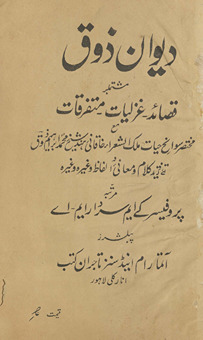 دیوان ذوق
مشتملبر
قصائد-غزلیات-متفرقات
مع
مختصر سوانح حیات ملک الشعرا خاقانی ہند شیخ محمد ابراہیم ذوق
کلام و معانی الفاظ وغیرہ وغیرہ
مرتبہ
پروفیسر کے ایم سردار ایم-اے
پبلشرز
آتما رام اینڈ سنز تاجران کتب
انارکلی لاہور
قیمت